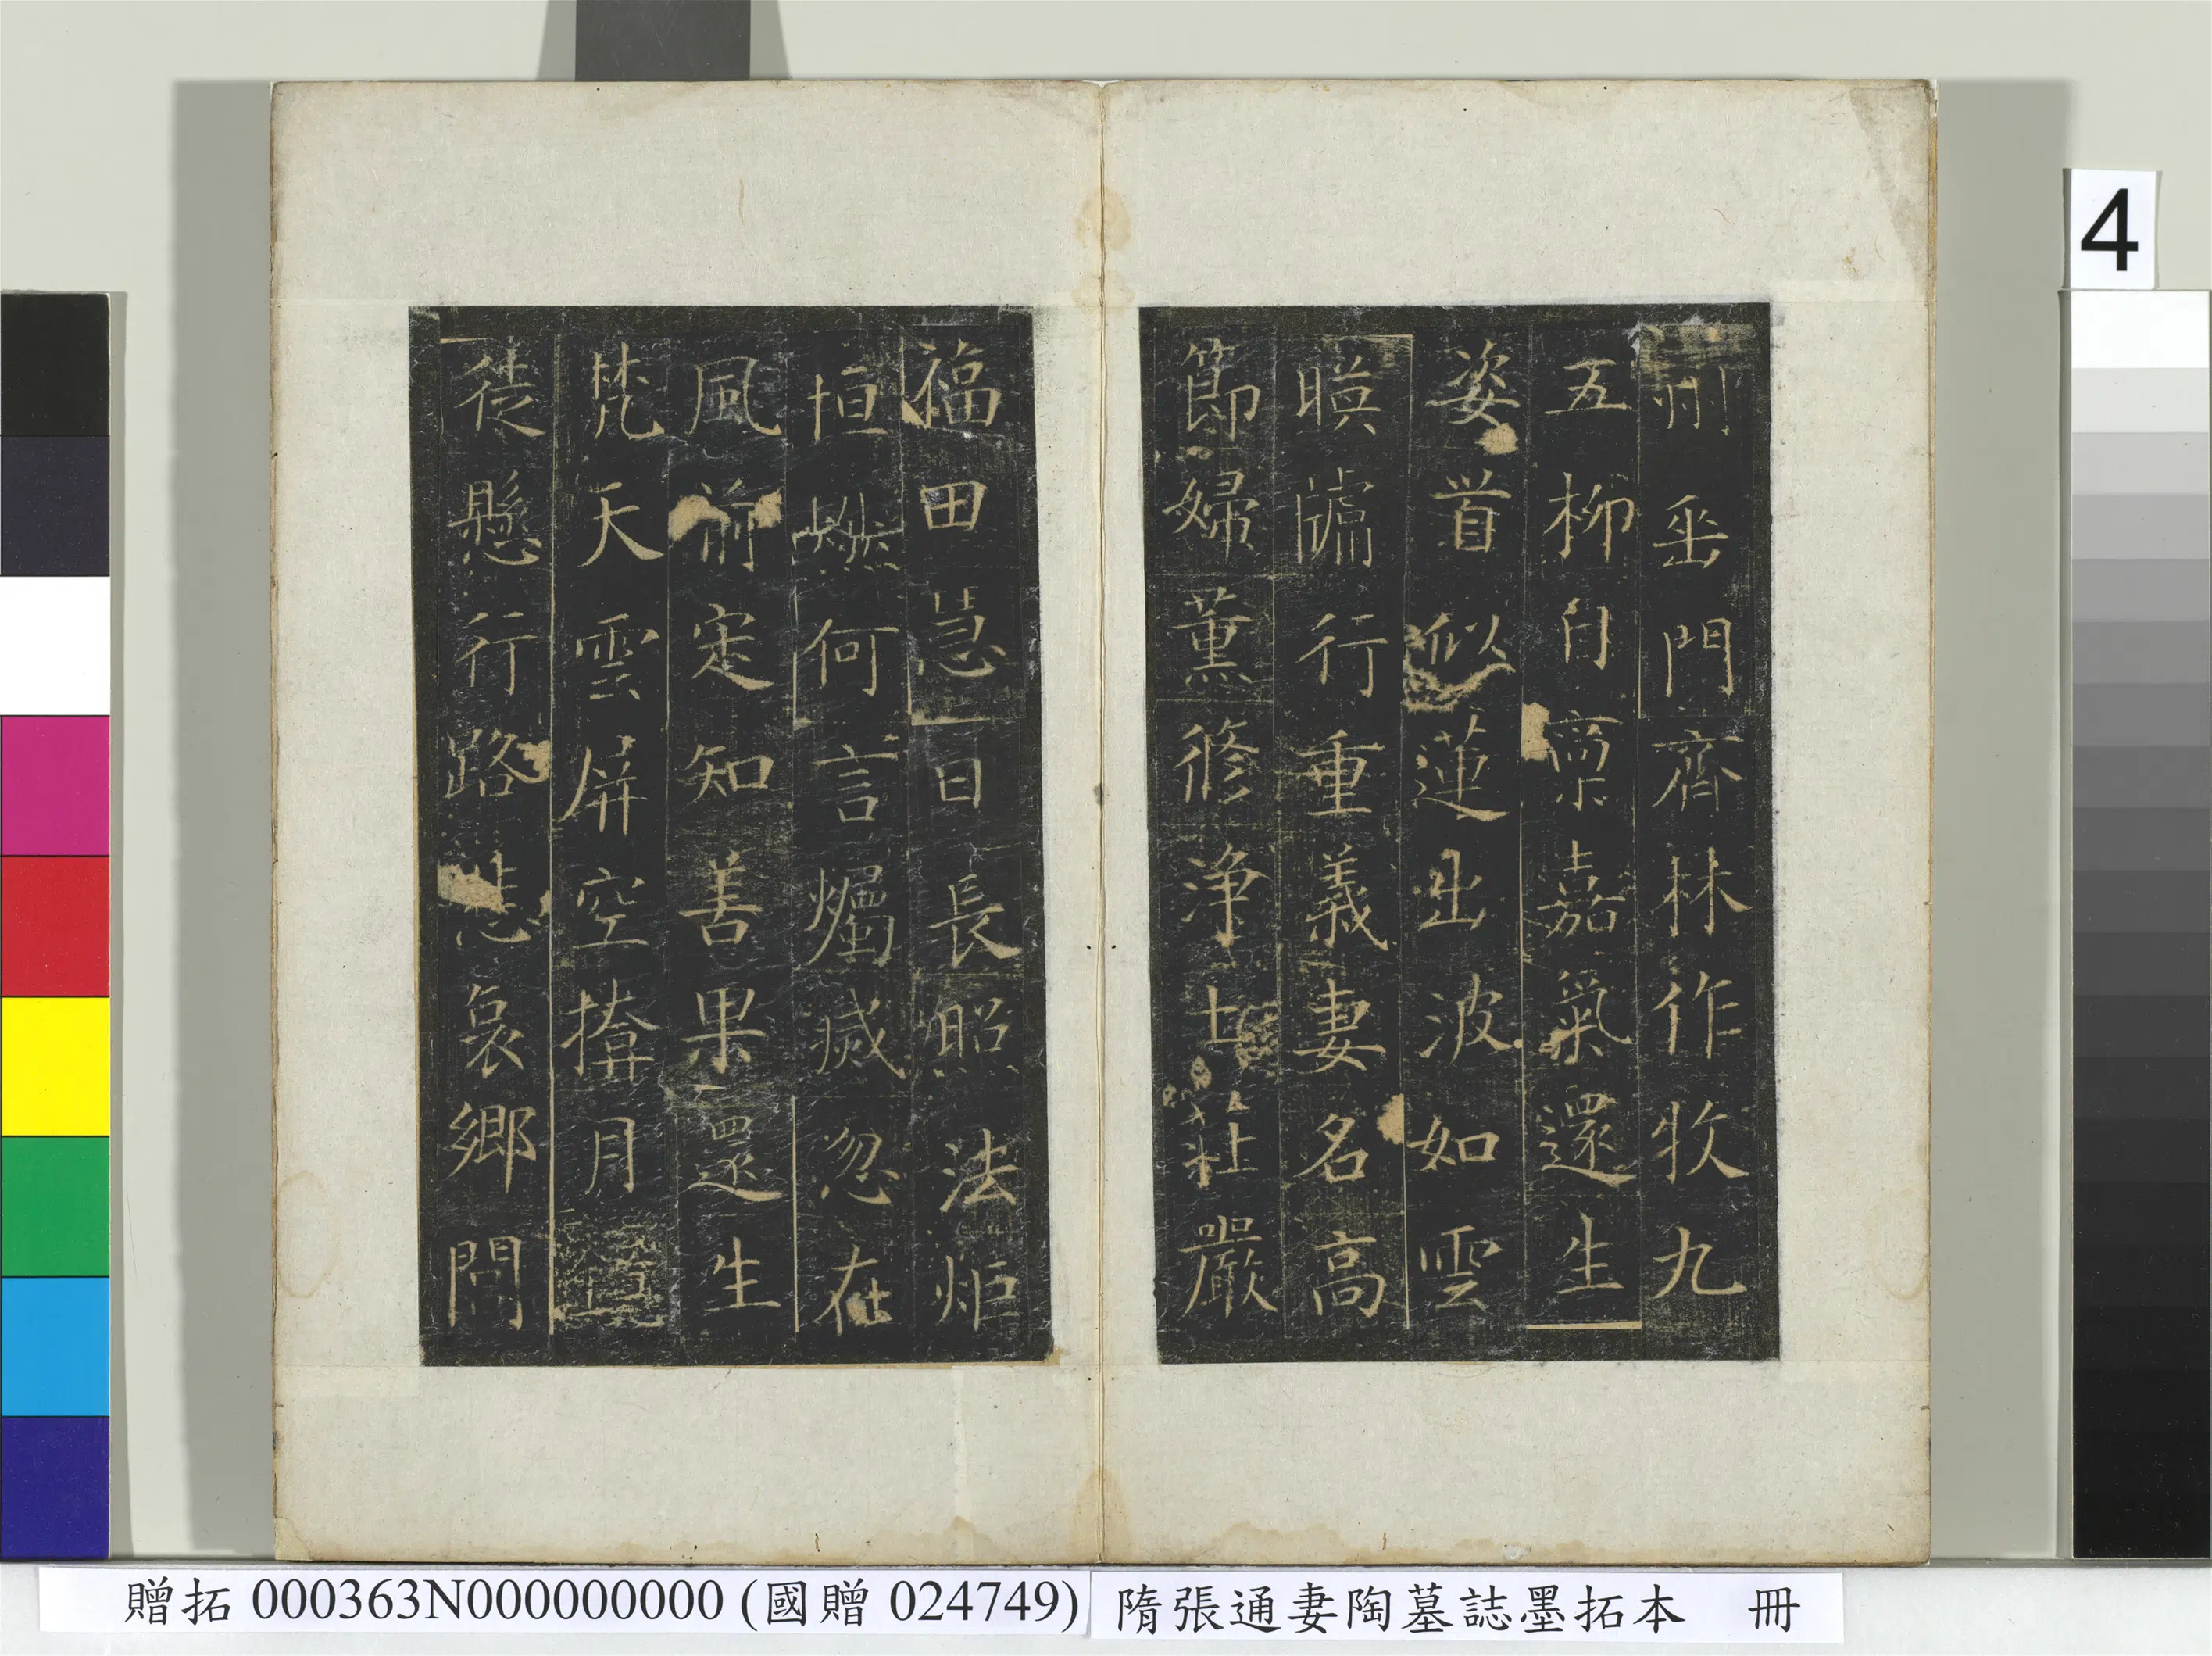 州垂門齊林作牧九
五柳自稟嘉氣還生
姿首似蓮出波如雲
暎牖行重義妻名高
節婦薰修淨土莊嚴
福田慧日長照法炬
恒燃何言燭滅忽在
風前定知善果還生
梵天雲屏空掩月鏡
徒懸行路悲哀鄉閭
4
贈拓 000363N000000000 (國贈 024749)
隋張通妻陶墓誌墨拓本 冊